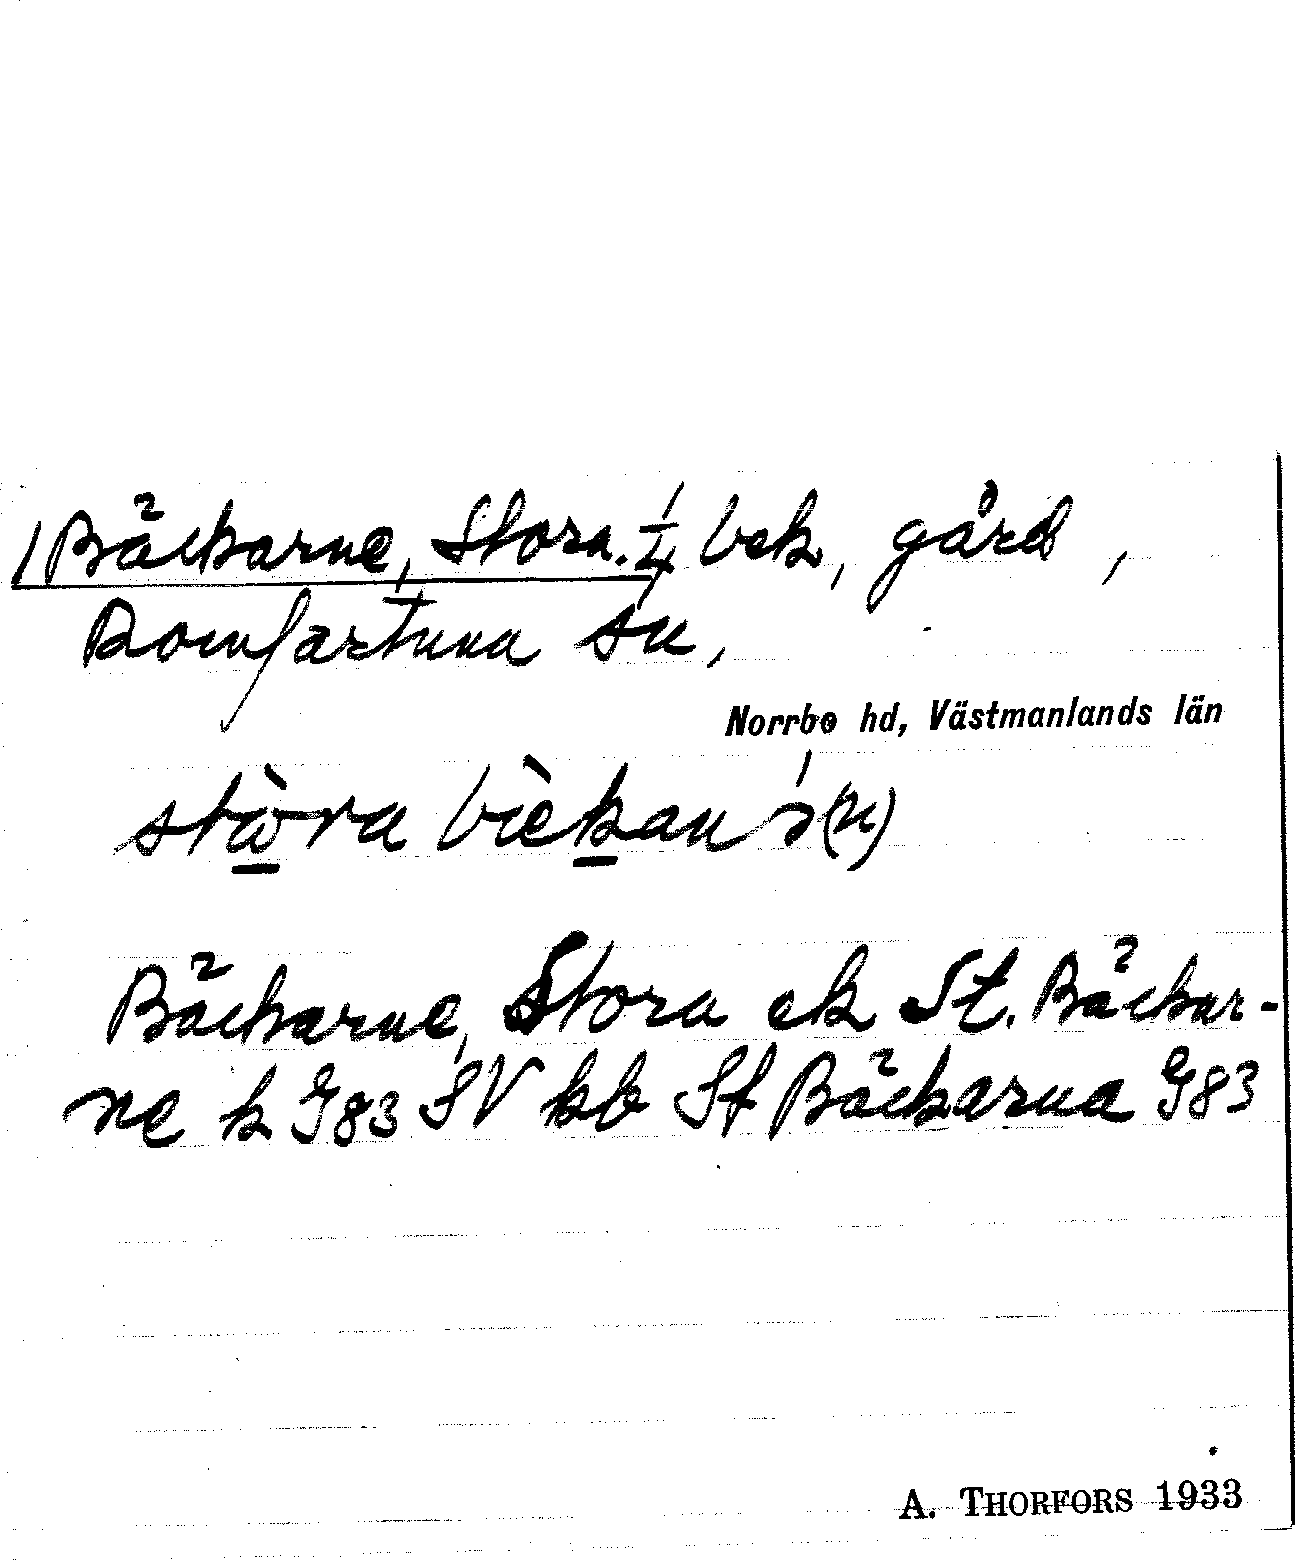 Bäckarne, Stora. 1/4 bek, gård,
Romfartuna sn,
Norrbo hd, Västmanlands län
Bäckarne, Stora ek St. Bäckar-
ne k G83 SV kb St Bäckarna G83
A. THORFORS 1933